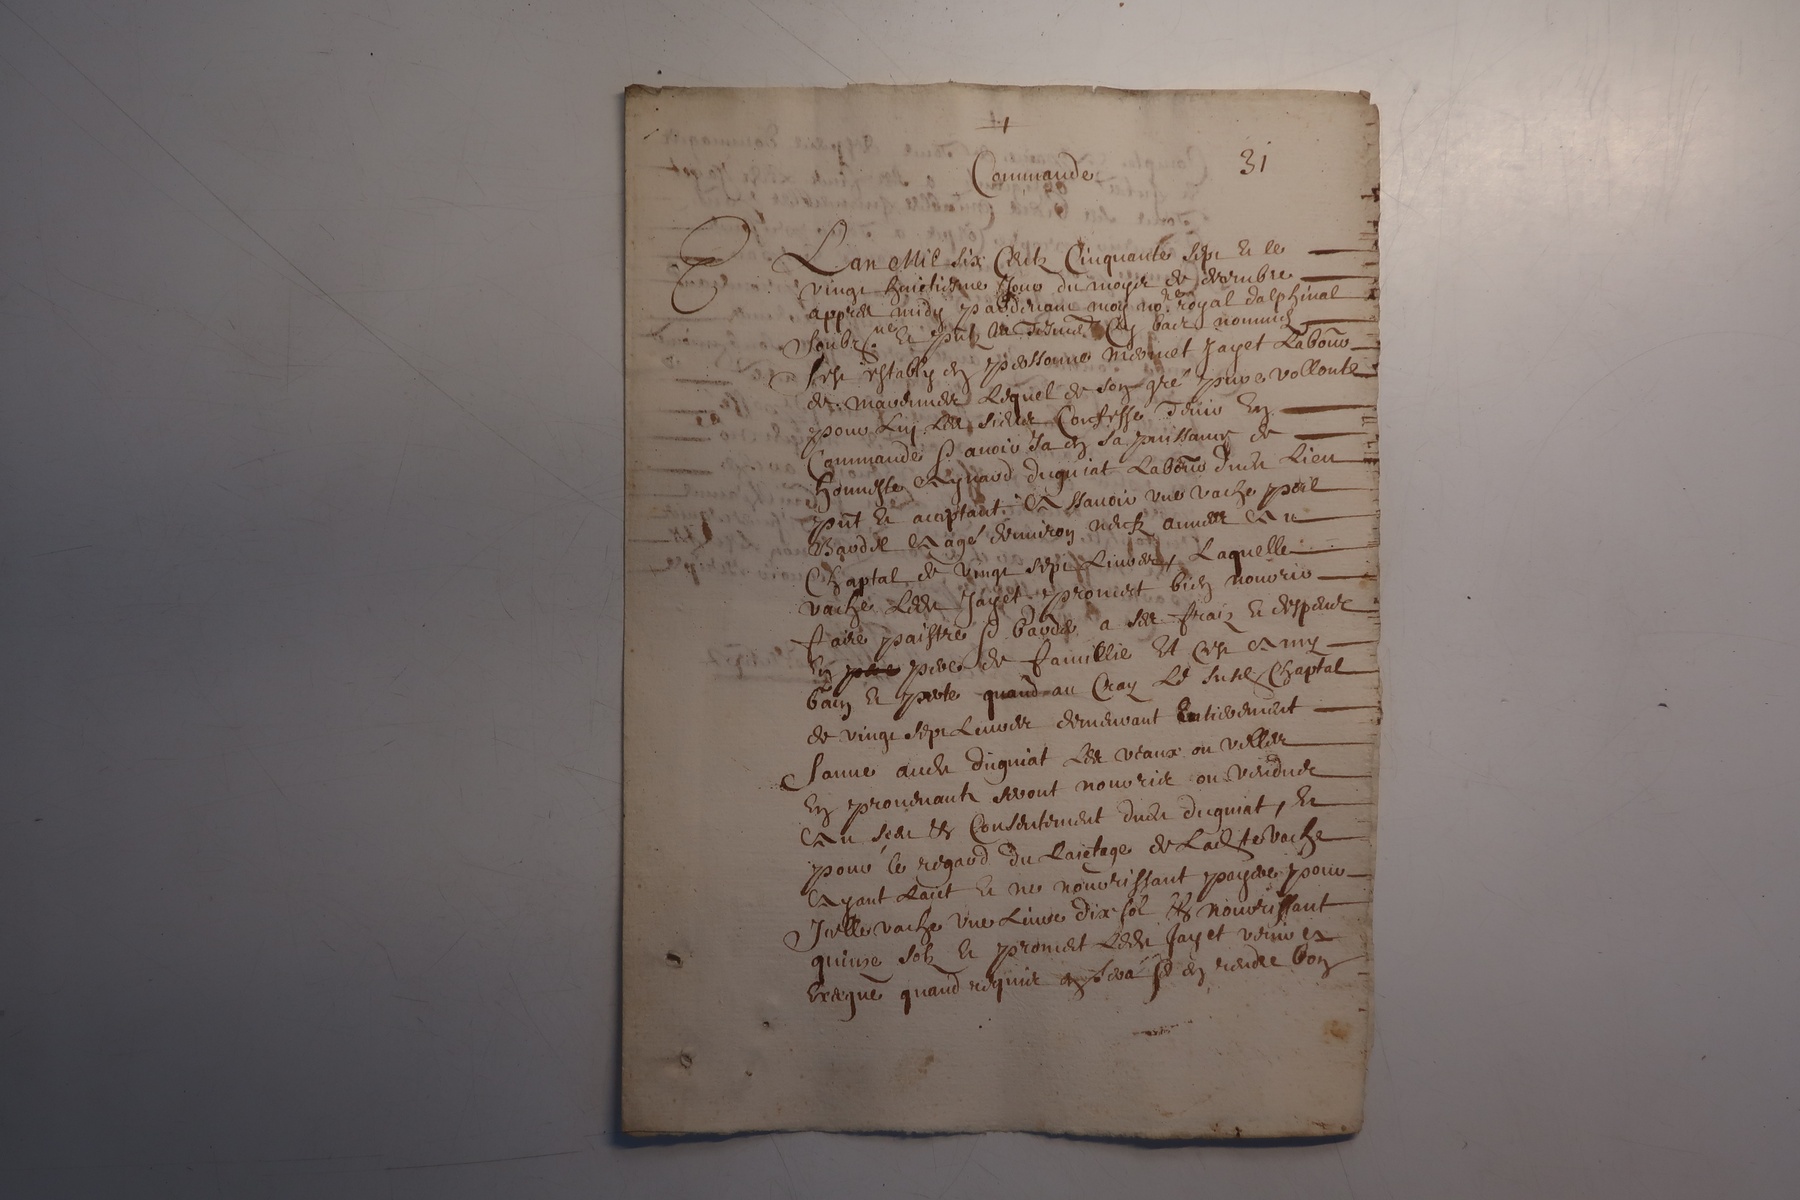 Commande
31
Lan Mil six Centz Cinquante sept et le
vingt huictiesme Jour du moys de decembre
appres midy pardevant moy no.re royal dalphinal
soubz.ne et p.ntz les tesm. cy bas nommez
sest estably en personne mermet Jayet Labour
de Lequel de son gré pure vollonte
pour Luy Les siens Confesse tenir En
Commande & avoir Ja en sa puissance de
honneste Aynard duguiat Labour dudt Lieu
pnt et aceptant Assavoir une vache poil
Bardel Agé denviron neufz annees Au
Chaptal de vingt sept Livres, Laquelle
vache Ledt Jayet promet bien nourrir
faire paistre & garder a ses fraiz et despens
En pere de famillie Et ce
et perte quand au Cray Le susd. Chaptal
de vingt sept Livres demeurant Entierement
Sauve audt duguiat Les veaux ou velles
En provenantz seront nourris ou vendus
Au sceu & Consentement dudt duguiat, Et
pour le regard du Laictage de Ladicte vache
Ayant Laict et ne nourrissant payera pour
Icelle vache une Livre dix sol & nourrissant
quinze solz et promet Ledt Jayet venir
quand requis sera & en rendre bon